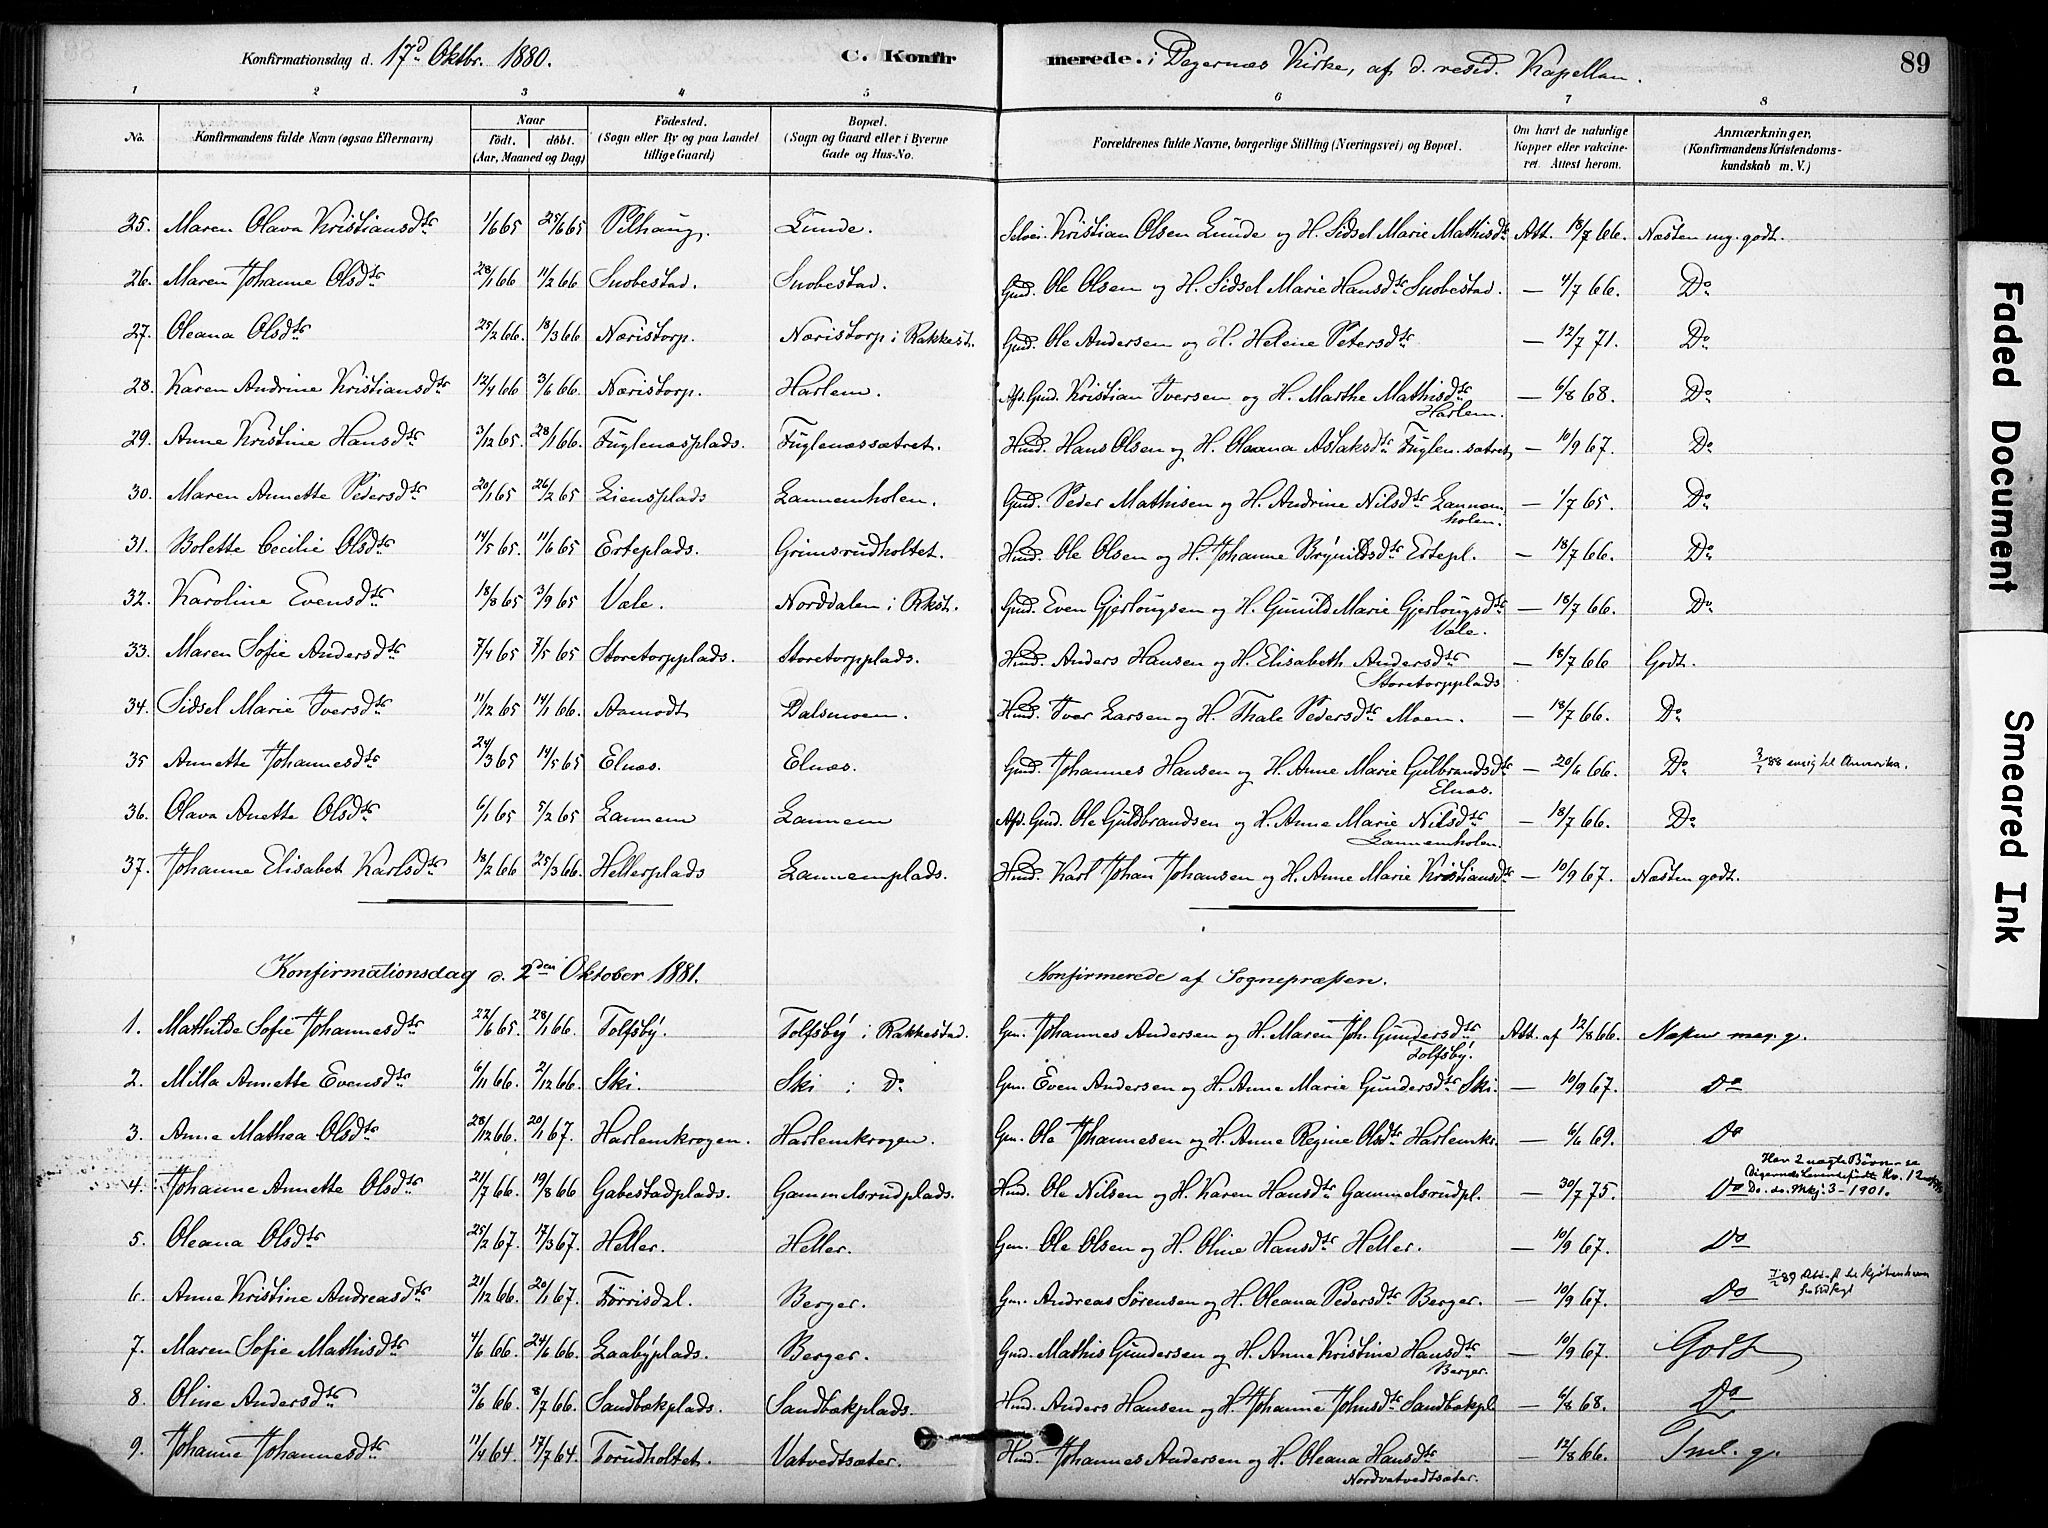 Konfirmationsdag d. 17d Oktbr. 1880. C. Konfirmerede. i Degernæs Kirke, af d. resid. Kapellan. 89
1 2 3 4 5 6 7 8
No. Konfirmandens fulde Navn (ogsaa Efternavn) Naar födt. döbt. (Aar, Maaned og Dag) Födested. (Sogn eller By og paa Landet tillige Gaard) Bopæl. (Sogn og Gaard eller i Byerne Gade og Hus-No. Forældrenes fulde Navne, borgerlige Stilling (Næringsvei) og Bopæl. Om havt de naturlige Kopper eller vakcineret. Attest herom. Anmærkninger, (Konfirmandens Kristendomskundskab m. V.)
25. Maren Olava Kristiansdtr 1/6 65 25/6 65 Pilhaug. Lunde. Selvei. Kristian Olsen Lunde og H. Sidsel Marie Mathisdtr Att. 18/7 66. Næsten mg. godt.
26. Maren Johanne Olsdtr 28/1 66 11/2 66 Snobestad. Snobestad. Gmd. Ole Olsen og H. Sidsel Marie Hansdtr Snobestad. — 4/7 66. Do
27. Oleana Olsdtr 25/2 66. 18/3 66 Næristorp. Næristorp i Rakkest. Gmd. Ole Andersen og H. Helene Petersdtr — 12/7 71. Do
28. Karen Andrine Kristiansdtr 12/4 66 3/6 66. Næristorp. Harlem. Afs. Gmd. Kristian Iversen og H. Marthe Mathisdtr Harlem. — 6/8 68. Do
29. Anne Kristine Hansdtr 3/12 65. 28/1 66. Fuglenæsplads. Fuglenæssætret. Hmd. Hans Olsen og H. Oleana Aslaksdtr Fuglen.sætret — 10/9 67. Do
30. Maren Annette Pedersdtr 20/1 65 26/2 65 Liensplads Lannemholen. Gmd. Peder Mathisen og H. Andrine Nilsdtr Lannemholen. — 1/7 65. Do
31. Bolette Cecilie Olsdtr 14/5 65. 11/6 65 Erteplads. Grimsrudholtet. Hmd. Ole Olsen og H. Johanne Brynildsdtr Ertepl. — 18/7 66. Do
32. Karoline Evensdtr 18/8 65 3/9 65 Vale. Norddalen i Rkst. Gmd. Even Gjerlougsen og H. Gunild Marie Gjerlougsdtr Vale. — 18/7 66. Do
33. Maren Sofie Andersdtr 7/4 65 7/5 65 Storetorpplads. Storetorpplads. Hmd. Anders Hansen og H. Elisabeth Andersdtr Storetorpplads — 18/7 66 Godt.
34. Sidsel Marie Iversdtr 11/12 65 14/1 66. Aamodt Dalsmoen. Hmd. Iver Larsen og H. Thale Pedersdtr Moen. — 18/7 66. Do
35 Annette Johannesdtr 24/3 65 14/5 65 Elnæs. Elnæs. Gmd. Johannes Hansen og H. Anne Marie Gulbrandsdtr Elnæs. — 20/6 66. Do 88 emig til Amerika.
36. Olava Anette Olsdtr 6/1 65 5/2 65 Lannem Lannem Afs. Gmd. Ole Guldbrandsen og H. Anne Marie Nilsdtr Lannemholen. — 18/7 66. Do
37. Johanne Elisabet Karlsdtr 18/2 66 25/3 66. Hellerplads Lannemplads. Hmd. Karl Johan Johansen og H. Anne Marie Kristiansdtr — 10/9 67. Næsten godt.
Konfirmationsdag d. 2den Oktober 1881. Konfirmerede af Sognepræsten.
1. Mathilde Sofie Johannesdtr 22/6 65. 28/1 66. Tolfsby. Tolfsby i Rakkestad. Gm. Johannes Andersen og H. Maren Joh. Gundersdtr Tolfsby. Att. af 12/8 66. Næsten meg. g.
2. Milla Annette Evensdtr 6/11 66. 2/12 66. Ski. Ski i Do Gm. Even Andersen og H. Anne Marie Gundersdtr Ski. — 10/9 67. Do
3. Anne Mathea Olsdtr 28/12 66. 20/1 67. Harlemkrogen. Harlemkrogen. Gm. Ole Johannesen og H. Anne Regine Olsdtr Harlemkr. — 6/6 69. Do
4. Johanne Annette Olsdtr 21/7 66. 19/8 66 Gabestadplads. Gammelsrudplads. Hmd. Ole Nilsen og H. Karen Hansdtr Gammelsrudpl. — 30/7 75. Do Har 2 uægte Børn – se Digernæs Levendefødte Kv. 12 Do. do. Mkj. 3 – 1901.
5. Oleana Olsdtr 25/2 67. 17/3 67. Heller. Heller. Gm. Ole Olsen og H. Oline Hansdtr Heller. — 10/9 67. Do
6. Anne Kristine Andreasdtr 21/12 66. 20/1 67. Förrisdal. Berger. Gm. Andreas Sörensen og H. Oleana Pedersdtr Berger. — 10/9 67. Do 89 til Kjøbenhavn
7. Maren Sofie Mathisdtr 4/6 66. 24/6 66. Laabyplads. Berger. Gmd. Mathis Gundersen og H. Anne Kristine Hansdtr Berger. — 10/9 67. Godt
8. Oline Andersdtr 3/6 66. 8/7 66. Sandbækplads. Sandbækplads. Hmd. Anders Hansen og H. Johanne Johnsdtr Sandbækpl — 6/8 68. Do
9. Johanne Johannesdtr 11/4 64. 17/7 64. Torudholtet. Vatvedtsæter. Hmd. Johannes Andersen og H. Oleana Hansdtr Nordvatvedtsæter. — 12/8 66. Tml. g.
Faded Document
Smeared Ink